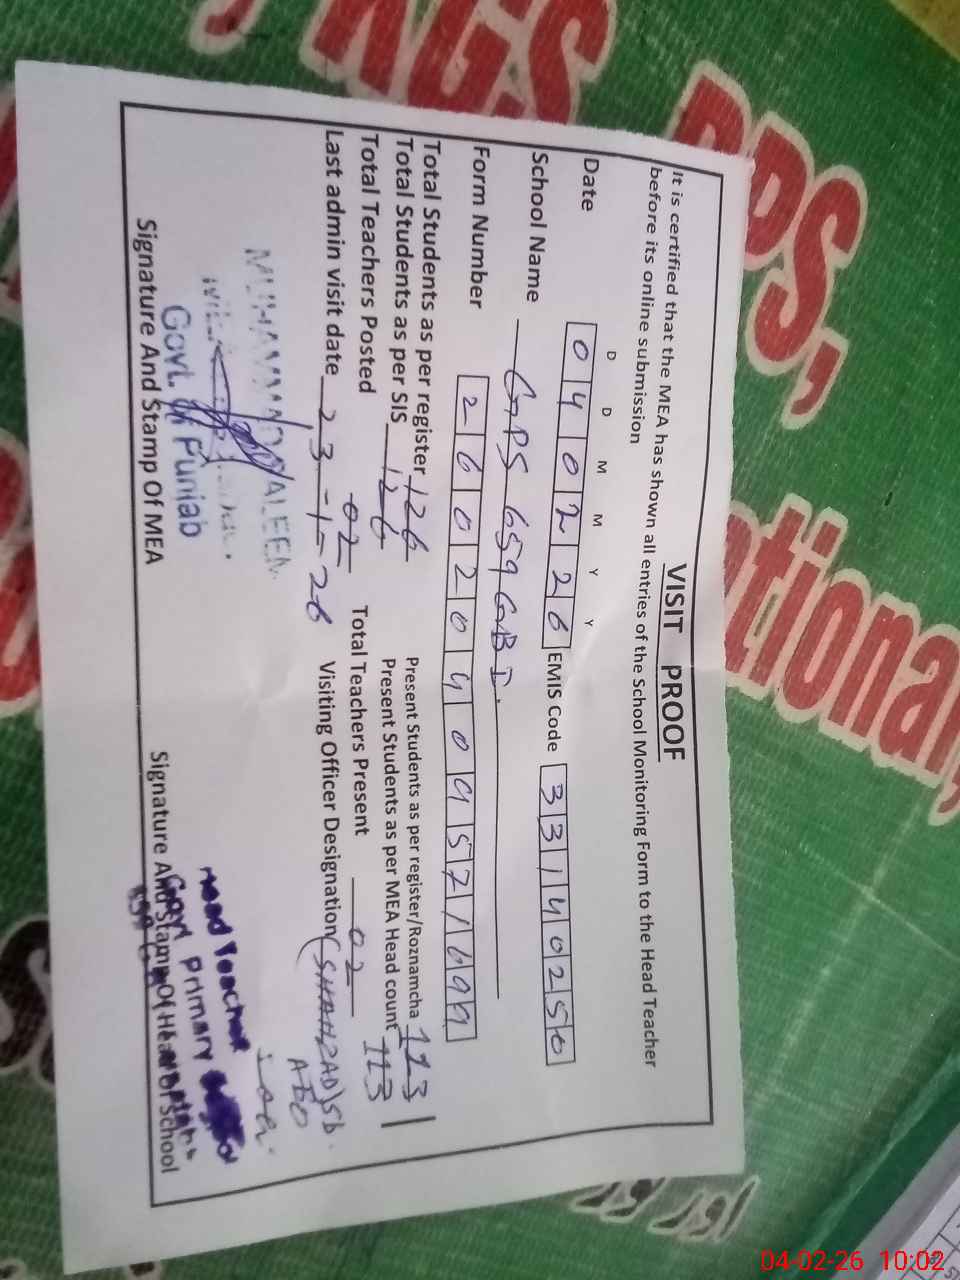 VISIT PROOF
It is certified that the MEA has shown all entries of the School Monitoring Form to the Head Teacher
before its online submission
D D M M Y Y
Date 040226 EMIS Code 33140250
School Name GPS 659 GB I.
Form Number 26020409571699
Total Students as per register 126 Present Students as per register/Roznamcha 113
Total Students as per SIS 126 Present Students as per MEA Head count 113
Total Teachers Posted 02 Total Teachers Present 02
Last admin visit date 23-1-26 Visiting Officer Designation (SHAHZAD) Sb.
AEO
MUHAMMAD
Govt. of Punjab
Head Teacher
Govt Primary
Signature And Stamp Of MEA Signature And Stamp Of Head Of School
PS,
ational,
اور
04-02-26 10:02